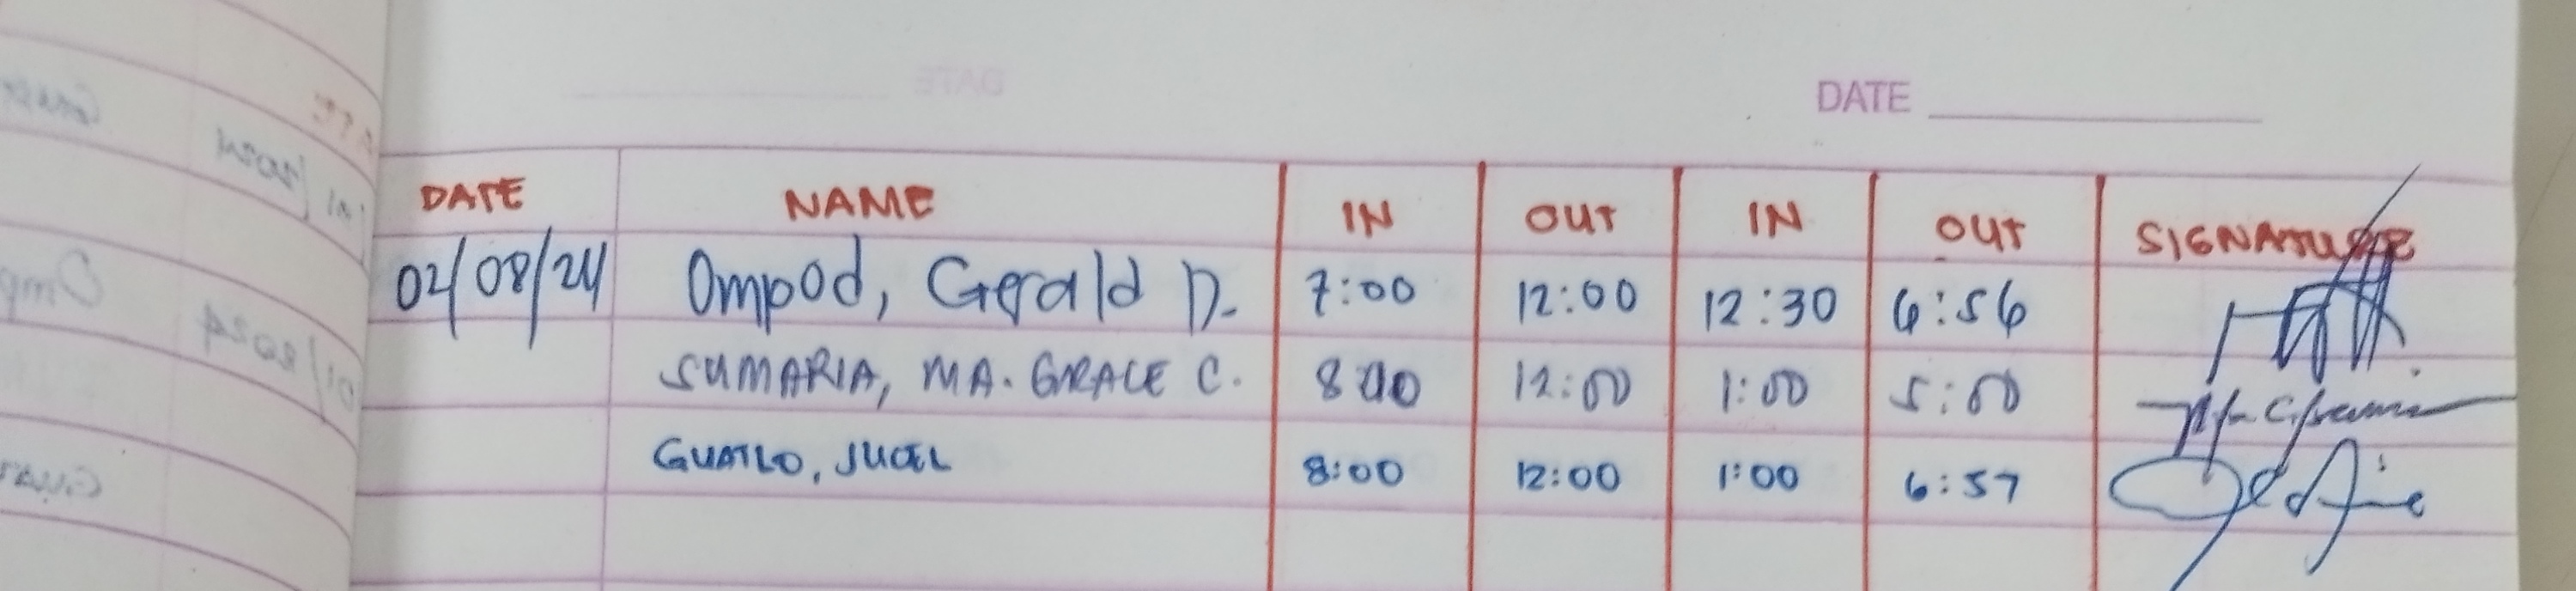 DATE
DATE NAME IN OUT IN OUT SIGNATURE
02/08/24 Ompod, Gerald D. 7:00 12:00 12:30 6:56
SUMARIA, MA. GRACE C. 8:00 12:00 1:00 5:00
GUATLO, JUCEL 8:00 12:00 1:00 6:57